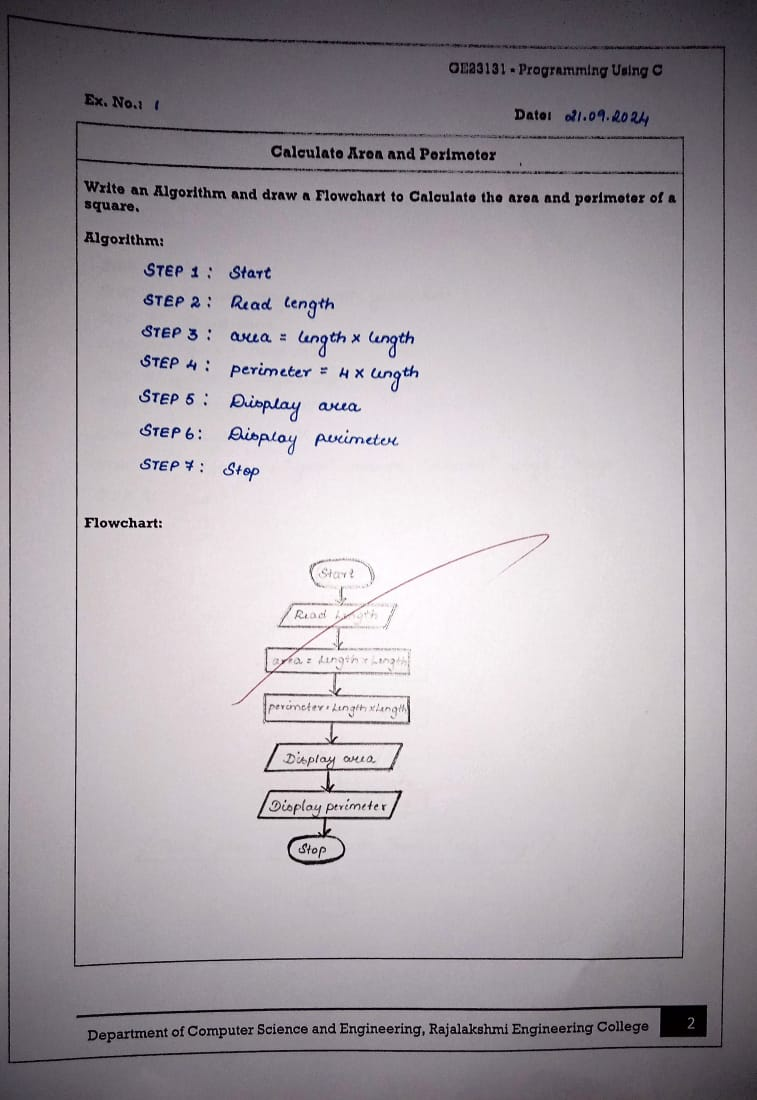 GE23131 - Programming Using C
Ex. No.: 1
Date: 21.09.2024
Calculate Area and Perimeter
Write an Algorithm and draw a Flowchart to Calculate the area and perimeter of a
square.
Algorithm:
STEP 1 : Start
STEP 2 : Read length
STEP 3 : area = length x length
STEP 4 : perimeter = 4 x length
STEP 5 : Display area
STEP 6 : Display perimeter
STEP 7 : Stop
Flowchart:
Start
Read Length
area = Length x Length
perimeter = Length x Length
Display area
Display perimeter
Stop
Department of Computer Science and Engineering, Rajalakshmi Engineering College 2